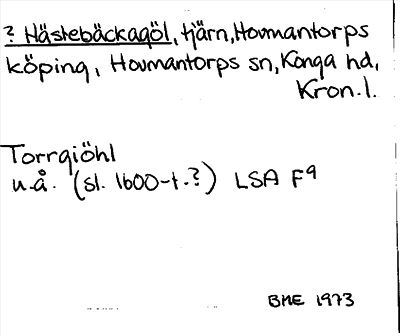 ? Hästebäckagöl, tjärn, Hovmantorps
köping, Hovmantorps sn, Konga hd,
Kron. l.
Torrgiöhl
u.å. (sl. 1600-t.?) LSA F9
BME 1973